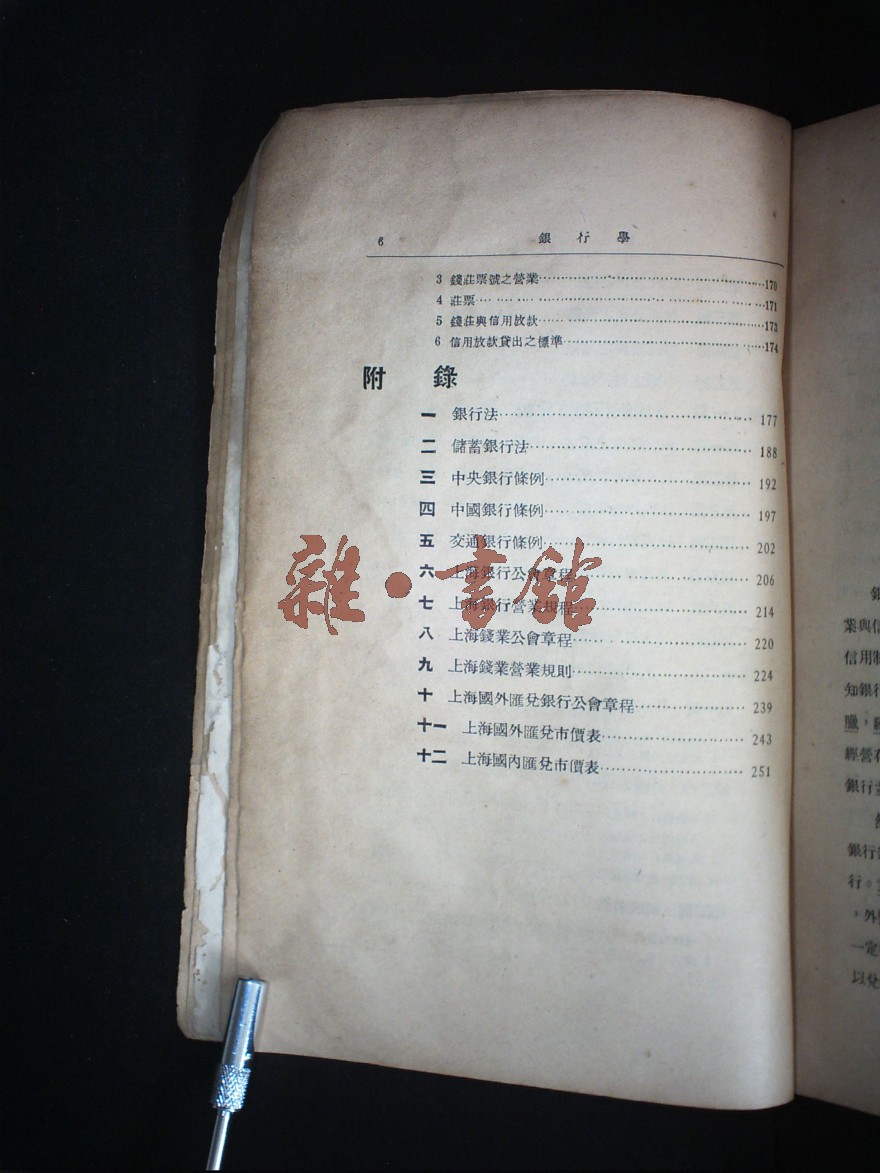 6 銀行學
3 錢莊票號之營業 170
4 莊票 171
5 錢莊與信用放款 173
6 信用放款貸出之標準 174
附錄
一 銀行法 177
二 儲蓄銀行法 188
三 中央銀行條例 192
四 中國銀行條例 197
五 交通銀行條例 202
六 上海銀行公會章程 206
七 上海銀行營業規程 214
八 上海錢業公會章程 220
九 上海錢業營業規則 224
十 上海國外匯兌銀行公會章程 239
十一 上海國外匯兌市價表 243
十二 上海國內匯兌市價表 251
雜·書館
銀
業與信
信用制
知銀行
經營存
銀行
銀行
行。
,外
一定
以兌